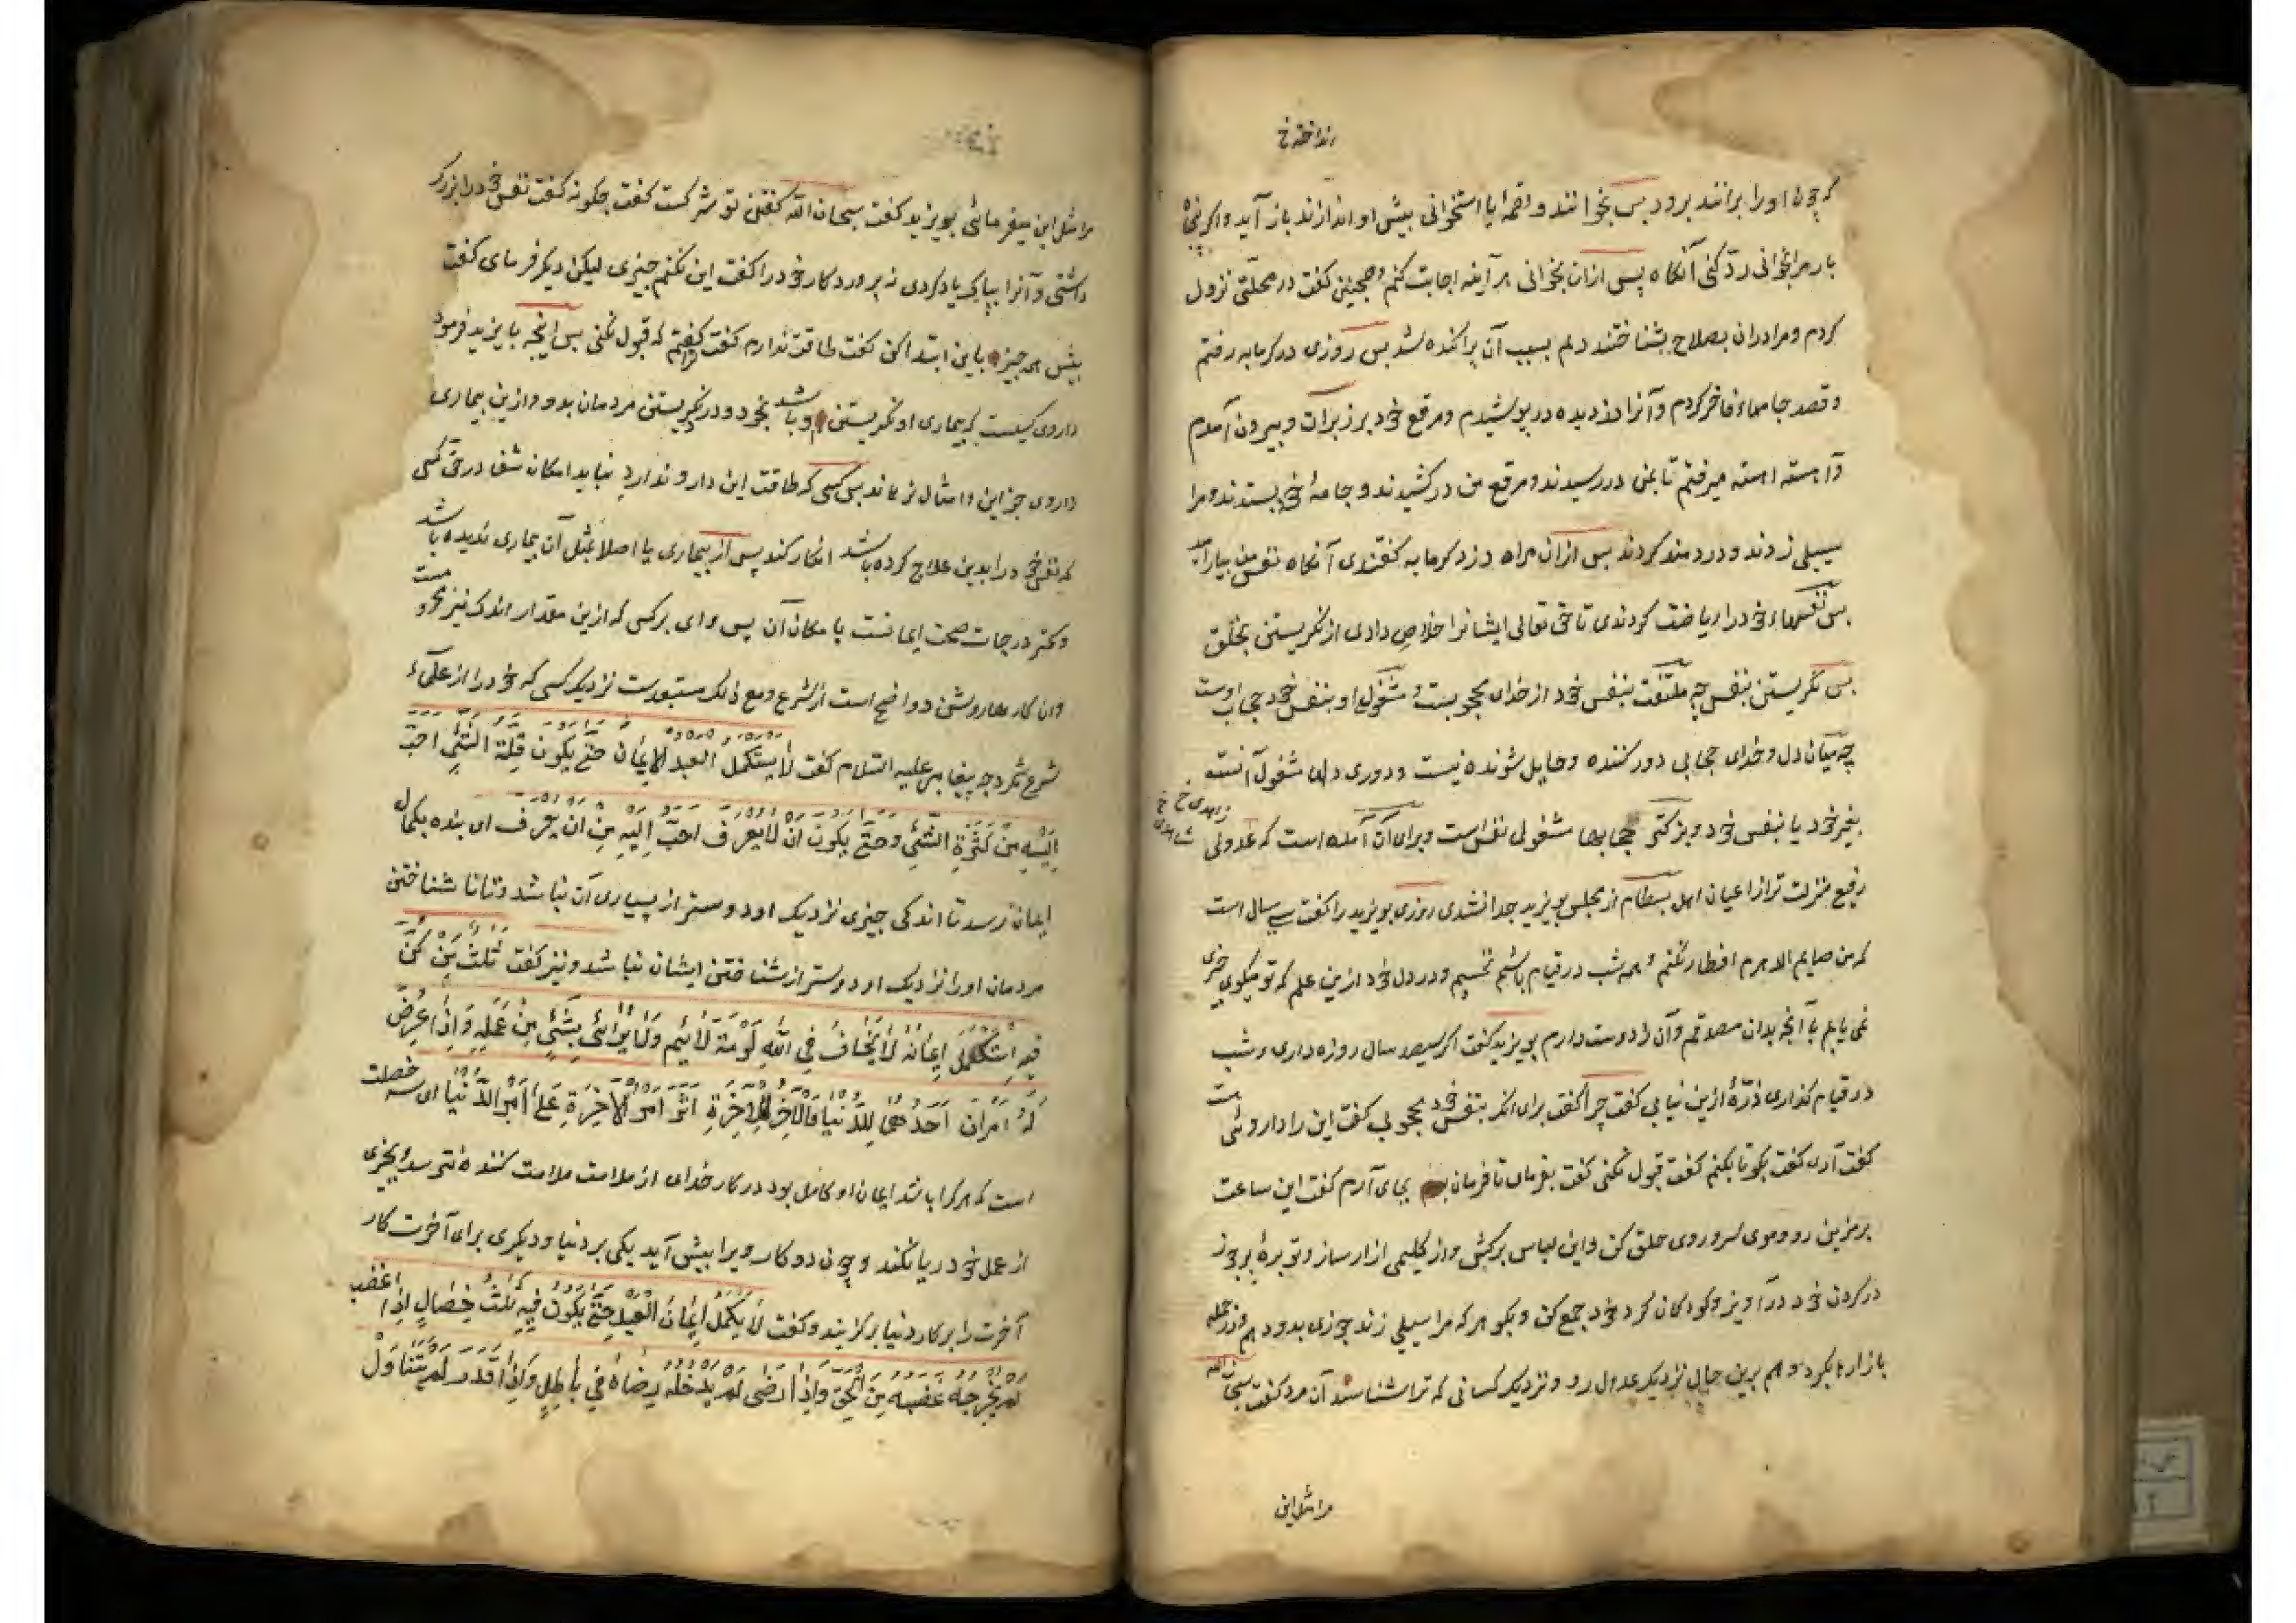 انداخته خ
که چون او را برانند برود پس بخوانند و لقمۀ یا استخوانی بیش او اندازند باز آید و اکر پنجاه
بار مرا بخوانی و رد کنی آنکاه پس ازان بخوانی هر آینه اجابت کنم و همچنین کفت در محلّتی نزول
کردم و مرا دران بصلاح بشناختند دلم بسبب آن پراکنده شد پس روزی در کرمابه رفتم
و قصد جامهاء فاخر کردم و آنرا دزدیده در پوشیدم و مرقع خود بر زبر آن و بیرون آمدم
و آهسته اهسته میرفتم تا بمن در رسیدند و مرقع من در کشیدند و جامۀ خود بستدند و مرا
سیلی زدند و دردمند کردند پس ازان مرا دزد کرمابه کفتندی آنکاه نفس من بیارامید
پس نفسهاء خود را ریاضت کردندی تا حق تعالی ایشانرا خلاص دادی از نکریستن بخلق
پس نکریستن بنفس چه ملتفت بنفس خود از خدای محجوبست و مشغولی او بنفس خود حجاب اوست
چه میان دل و خدای حجابی دور کننده و حایل شونده نیست و دوری دلها مشغولی آنست
بغیر خود یا بنفس خود و بزرکتر حجابها مشغولی نفس است و برای آن آمده است که عدولی
زاهدی خ
شاهدی خ
رفیع منزلت تر از اعیان اهل بسطام از مجلس بویزید جدا نشدی روزی بویزید را کفت سی سال است
که من صایم الدهرم افطار نکنم و همه شب در قیام باشم نخسپم و در دل خود ازین علم که تو میکویی چیزی
نمی یابم با آنچه بدان مصدقم و آن را دوست دارم بویزید کفت اکر سیصد سال روزه داری و شب
در قیام کذاری ذرّۀ ازین نیابی کفت چرا کفت برای انکه بنفس خود محجوبی کفت این را دارویی هست
کفت آری کفت بکو تا بکنم کفت قبول نکنی کفت بفرمای تا فرمان بجای آرم کفت این ساعت
بر مزین رو و موی سر و روی حلق کن و این لباس برکش و از کلیمی ازار ساز و توبرۀ پر جوز
در کردن خود درآویز و کودکان کرد خود جمع کن و بکو هر که مرا سیلی زند جوزی بدو دهم و در جمله
بازارها بکرد و هم برین حال نزدیک عدول رو و نزدیک کسانی که ترا شناسند آن مرد کفت سبحان الله
مرا مثل این
مرا مثل این میفرمائی بویزید کفت سبحان الله کفتن تو شرکست کفت چکونه کفت نفس خود را بزرک
داشتی و آنرا بپاکی یاد کردی نه پروردکار خود را کفت این نکنم چیزی لیکن دیکر فرمای کفت
پیش همه چیز باین ابتدا کن کفت طاقت ندارم کفت کفتم ترا که قبول نکنی پس اینچه بایزید فرمود
داروی کیست که بیماری او نکریستن او باشد بخود و در نکریستن مردمان بدو و ازین بیماری
داروی جز این و امثال نرهاند پس کسی که طاقت این دارو ندارد نباید امکان شفا در حق کسی
که نفس خود را بدین علاج کرده باشد انکار کند پس از بیماری یا اصلا بمثل آن بیماری ندیده باشد
و کمتر درجات صحت ایمانست با مکان آن پس وای بر کسی که ازین مقدار اندک نیز محرومست
و ان کارها روشن و واضح است از شرع و مع ذلک مستبعدست نزدیک کسی که خود را از علماء
شرع شمرد چه پیغامبر علیه السلام کفت لَا یَستَکمِلُ العَبدُ الاِیمَانَ حَتّٰی یَکُونَ قِلَّةُ الشَّیْءِ اَحَبَّ
اِلَیْهِ مِنْ کَثْرَةِ الشَّیْءِ وَحَتّٰی یَکُونَ اَنْ لَا یُعْرَفَ اَحَبَّ اِلَیْهِ مِنْ اَنْ یُعْرَفَ ای بنده بکمال
ایمان نرسد تا اندکی چیزی نزدیک او دوستر از بسیاری آن نباشد و تا ناشناختن
مردمان او را نزدیک او دوستر از شناختن ایشان نباشد و نیز کفت ثَلٰثٌ مَنْ کُنَّ
فِیهِ اسْتَکْمَلَ اِیمَانَهُ لَا یَخَافُ فِی اللّٰهِ لَوْمَةَ لَائِمٍ وَلَا یُرَائِی بِشَیْءٍ مِنْ عَمَلِهِ وَاِذَا عُرِضَ
لَهُ اَمْرَانِ اَحَدُهُمَا لِلدُّنْیَا وَالْاٰخَرُ لِلْاٰخِرَةِ اٰثَرَ اَمْرَ الْاٰخِرَةِ عَلٰی اَمْرِ الدُّنْیَا ای سه خصلت
است که هر کرا باشد ایمان او کامل بود در کار خدای از ملامت ملامت کننده نترسد و بچیزی
از عمل خود ریا نکند و چون دو کار ویرا پیش آید یکی بر دنیا و دیکری برای آخرت کار
آخرت را بر کار دنیا برکزیند و کفت لَا یَکْمُلُ اِیمَانُ الْعَبْدِ حَتّٰی یَکُونَ فِیهِ ثَلٰثُ خِصَالٍ اِذَا غَضِبَ
لَمْ یُخْرِجْهُ غَضَبُهُ مِنَ الْحَقِّ وَاِذَا رَضِیَ لَمْ یُدْخِلْهُ رِضَاهُ فِی بَاطِلٍ وَاِذَا قَدَرَ لَمْ یَتَنَاوَلْ